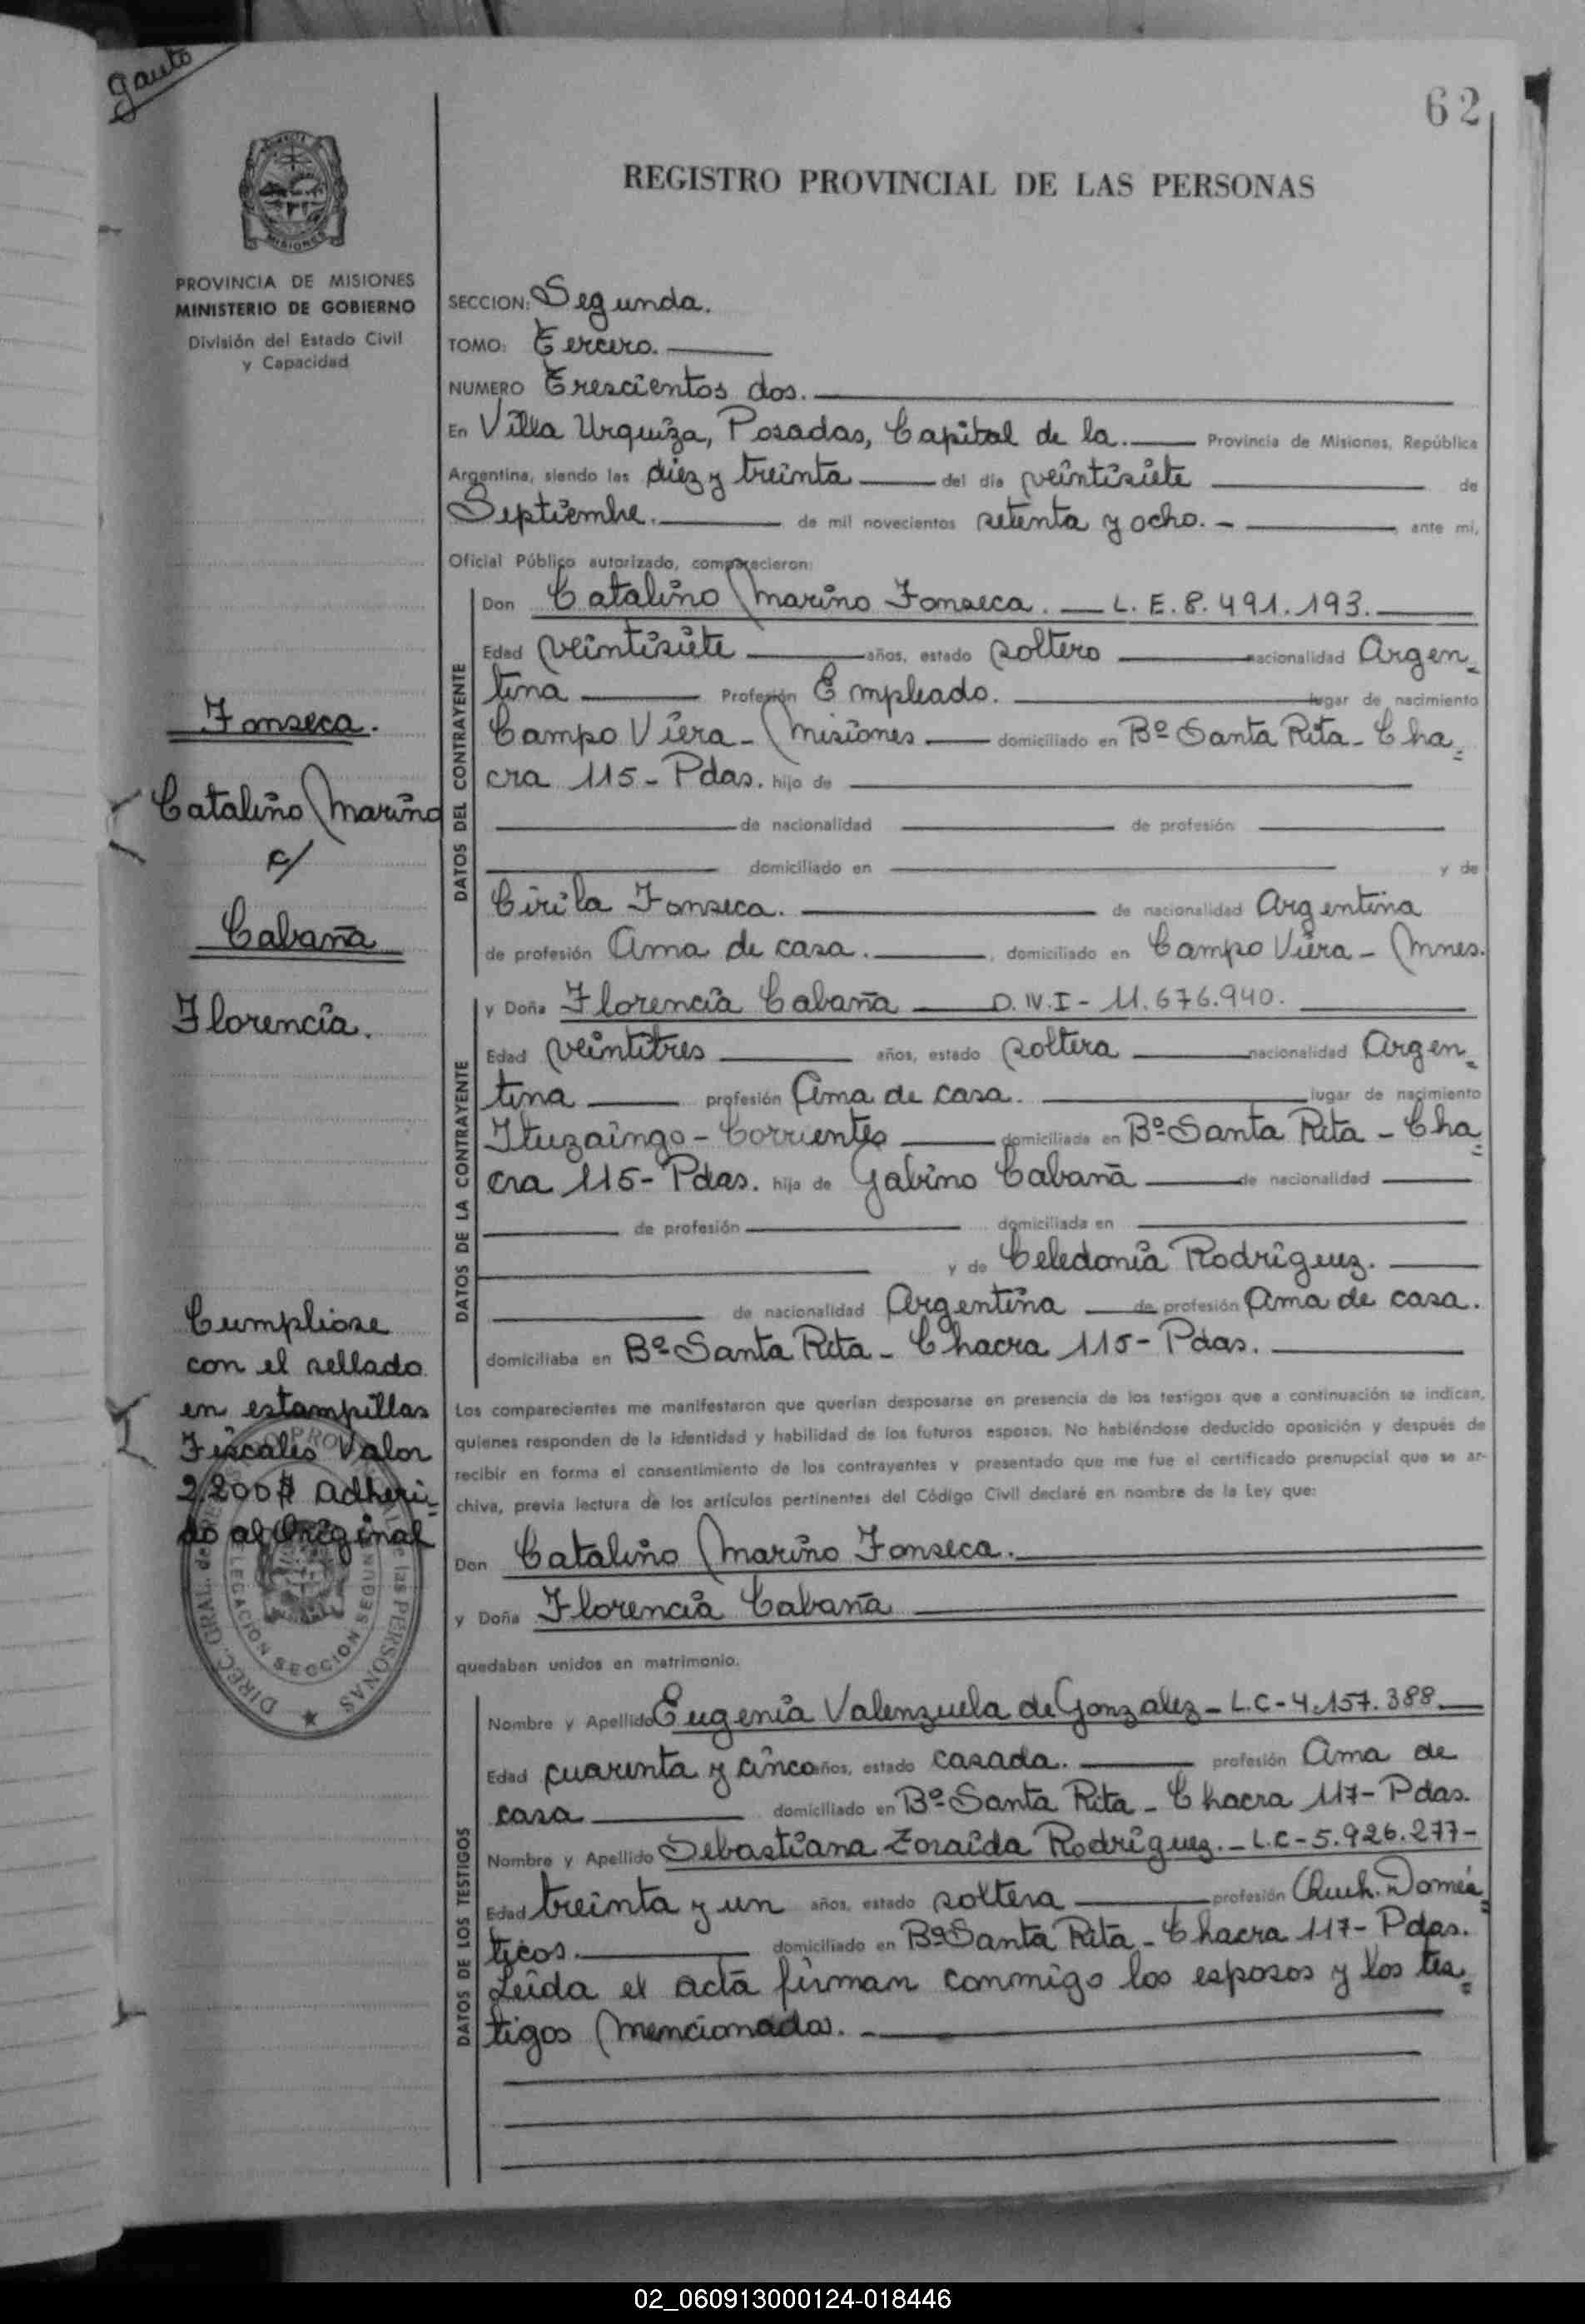 Gauto
62
REGISTRO PROVINCIAL DE LAS PERSONAS
MISIONES
PROVINCIA DE MISIONES
MINISTERIO DE GOBIERNO
División del Estado Civil
y Capacidad
SECCION: Segunda.
TOMO: Tercero.
NUMERO Trescientos dos.
En Villa Urquiza, Posadas, Capital de la. Provincia de Misiones, República
Argentina, siendo las diez y treinta del día veintisiete de
Septiembre. de mil novecientos setenta y ocho. - ante mí,
Oficial Público autorizado, comparecieron:
DATOS DEL CONTRAYENTE
Don Catalino Marino Fonseca. L. E. 8.491.193.
Edad veintisiete años, estado soltero nacionalidad Argen=
tina Profesión Empleado. lugar de nacimiento
Campo Viera - Misiones domiciliado en Bº Santa Rita - Cha=
cra 115 - Pdas. hijo de
de nacionalidad de profesión
domiciliado en y de
Cirila Fonseca. de nacionalidad Argentina
de profesión Ama de casa. , domiciliado en Campo Viera - Mnes.
DATOS DE LA CONTRAYENTE
y Doña Florencia Cabaña D.N.I - 11.676.940.
Edad veintitres años, estado soltera nacionalidad Argen=
tina profesión Ama de casa. lugar de nacimiento
Ituzaingo - Corrientes domiciliada en Bº Santa Rita - Cha=
cra 115 - Pdas. hija de Gabino Cabaña de nacionalidad
de profesión domiciliada en
y de Celedonia Rodriguez.
de nacionalidad Argentina de profesión Ama de casa.
domiciliaba en Bº Santa Rita - Chacra 115 - Pdas.
Los comparecientes me manifestaron que querían desposarse en presencia de los testigos que a continuación se indican,
quienes responden de la identidad y habilidad de los futuros esposos. No habiéndose deducido oposición y después de
recibir en forma el consentimiento de los contrayentes y presentado que me fue el certificado prenupcial que se ar-
chiva, previa lectura de los artículos pertinentes del Código Civil declaré en nombre de la Ley que:
Don Catalino Marino Fonseca.
y Doña Florencia Cabaña
quedaban unidos en matrimonio.
DATOS DE LOS TESTIGOS
Nombre y Apellido Eugenia Valenzuela de Gonzalez - L.C - 4.157.388
Edad cuarenta y cinco años, estado casada. profesión Ama de
casa domiciliado en Bº Santa Rita - Chacra 117 - Pdas.
Nombre y Apellido Sebastiana Zoraida Rodriguez. - L.C - 5.926.277 -
Edad treinta y un años, estado soltera profesión Queh. Domés=
ticos. domiciliado en Bº Santa Rita - Chacra 117 - Pdas.
Leida el acta firman conmigo los esposos y los tes=
tigos mencionados. -
Fonseca.
Catalino Marino
c/
Cabaña
Florencia.
Cumpliose
con el sellado
en estampillas
Fiscales Valor
2.200$ adheri-
do al Original
DIREC. GRAL. de las PERSONAS
DELEGACION SECCION SEGUNDA
02_060913000124-018446